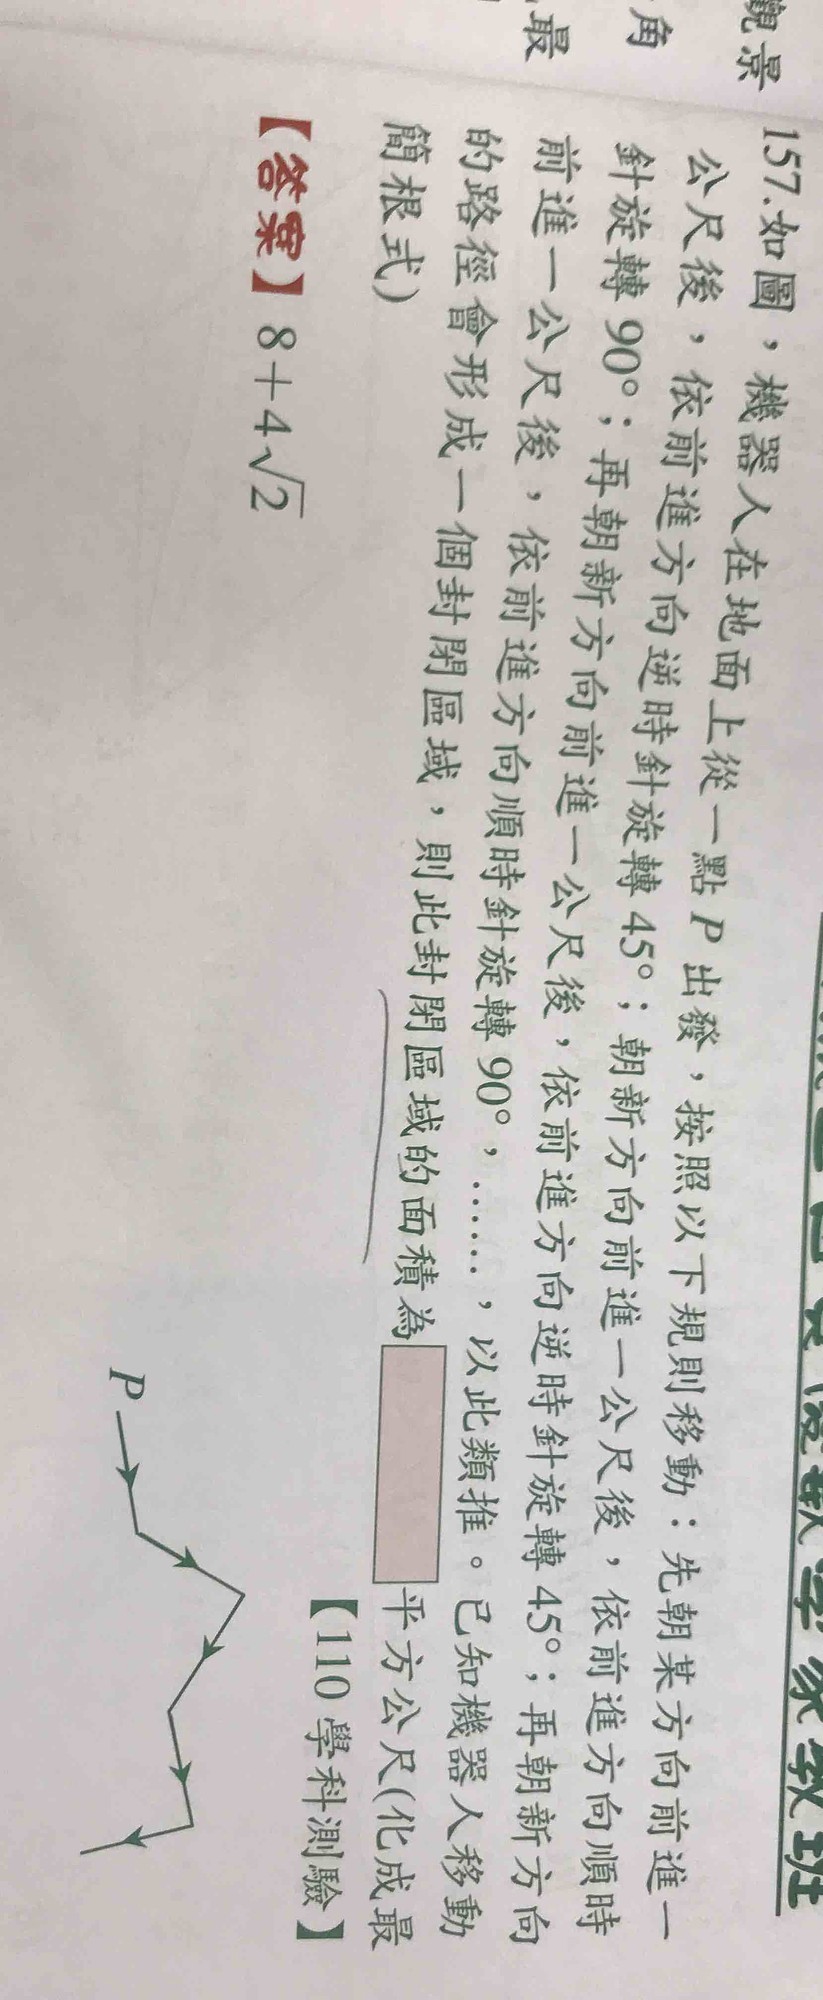 觀景
角
最
157.如圖，機器人在地面上從一點 P 出發，按照以下規則移動：先朝某方向前進一
公尺後，依前進方向逆時針旋轉 45°；朝新方向前進一公尺後，依前進方向順時
針旋轉 90°；再朝新方向前進一公尺後，依前進方向逆時針旋轉 45°；再朝新方向
前進一公尺後，依前進方向順時針旋轉 90°，……，以此類推。已知機器人移動
的路徑會形成一個封閉區域，則此封閉區域的面積為 平方公尺(化成最
簡根式)
【110 學科測驗】
【答案】8+4√2
P